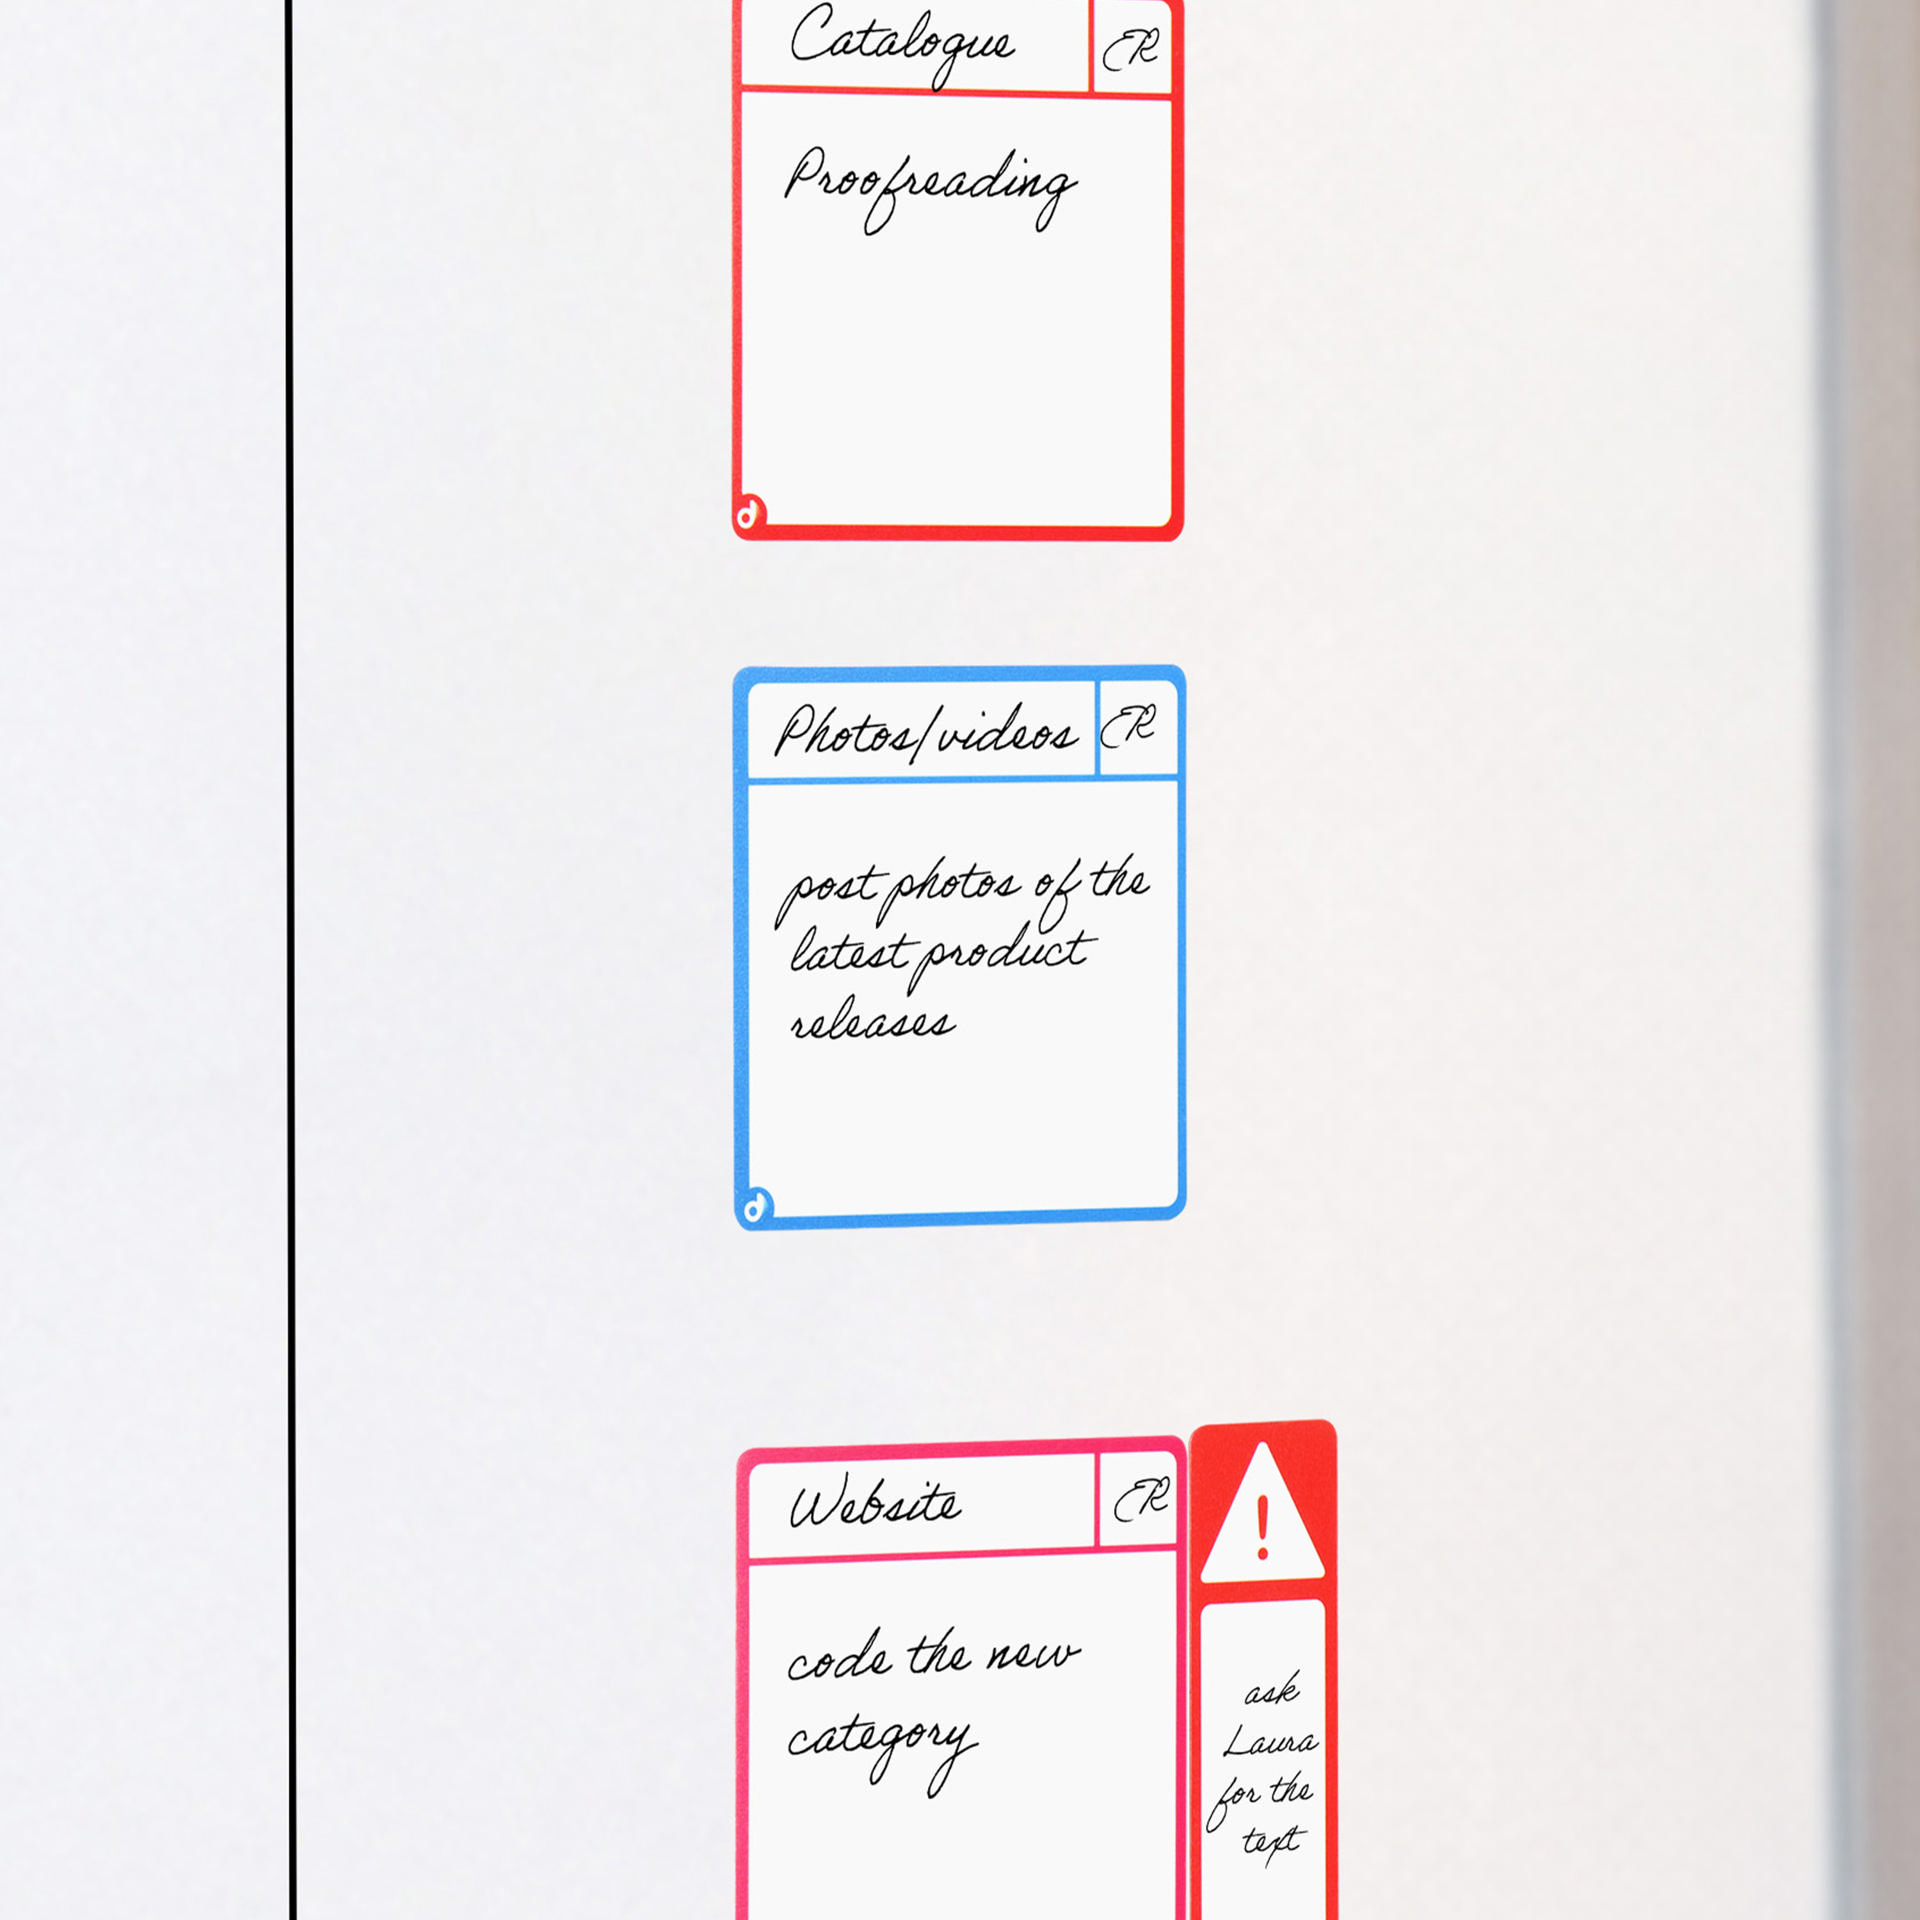 Catalogue ER
Proofreading
Photos/videos ER
post photos of the
latest product
releases
Website ER
code the new
category
!
ask
Laura
for the
text